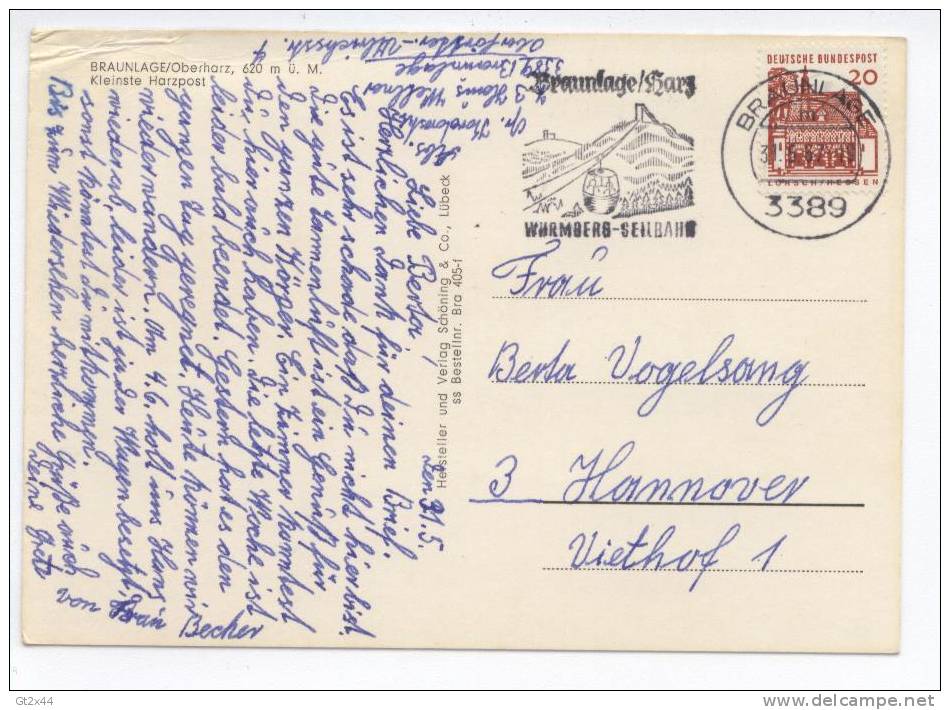 BRAUNLAGE/Oberharz, 620 m ü. M.
Kleinste Harzpost
Hersteller und Verlag Schöning & Co., Lübeck
ss Bestellnr. Bra 405-f
Braunlage/Harz
WURMBERG-SEILBAHN
BRAUNLAGE
3389
DEUTSCHE BUNDESPOST
20
LORSCH/HESSEN
Abs.
z. Z. Haus
3389 Braunlage
Oberförster-Ulrichstr. 4
Den 31. 5.
Liebe Berta,
Herzlichen Dank für deinen Brief.
Es ist sehr schade daß Du nicht hier bist.
Die gute Tannenluft ist ein Genuß für
den ganzen Körper. Ein Zimmer kanntest
Du hier auch haben. Die letzte Woche ist
leider bald beendet. Gestern hat es den
ganzen Tag geregnet. Heute können wir
wieder wandern. Am 4. 6. holt uns Hans
wieder ab, leider ist ja der Wagen besetzt,
sonst könntest Du mitkommen.
Bis zum Wiedersehen herzliche Grüße auch
Deine Grete
von Frau Becker
Frau
Berta Vogelsang
3 Hannover
Viethof 1
Gt2x44
delcampe.net